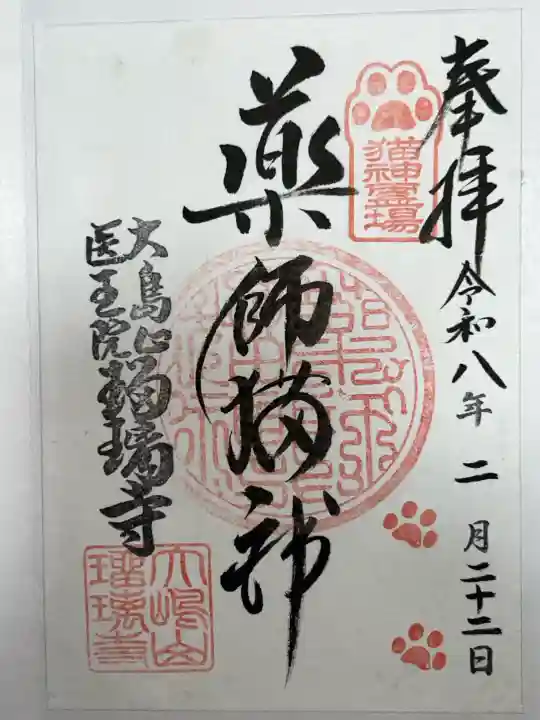 奉拝
令和八年 二 月二十二日
猫神霊場
薬師猫神
大島山
医王院
瑠璃寺
大嶋山
瑠璃寺